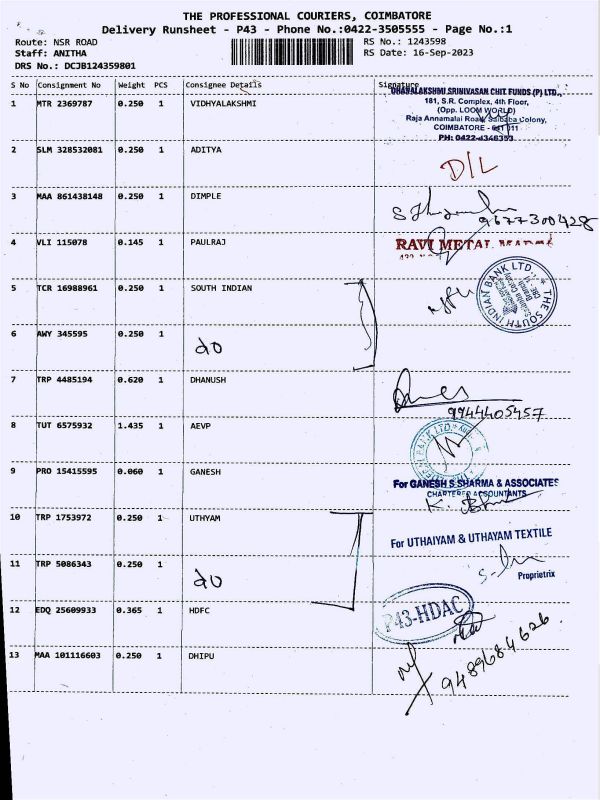 THE PROFESSIONAL COURIERS, COIMBATORE
Delivery Runsheet - P43 - Phone No.:0422-3505555 - Page No.:1
Route: NSR ROAD RS No.: 1243598
Staff: ANITHA RS Date: 16-Sep-2023
DRS No.: DCJB124359801
S No Consignment No Weight PCS Consignee Details Signature
1 MTR 2369787 0.250 1 VIDHYALAKSHMI
DHANALAKSHMI SRINIVASAN CHIT FUNDS (P) LTD.,
181, S.R. Complex, 4th Floor,
(Opp. LOOM WORLD)
Raja Annamalai Road, Saibaba Colony,
COIMBATORE - 641 011
PH: 0422-4346353
2 SLM 328532081 0.250 1 ADITYA D/L
3 MAA 861438148 0.250 1 DIMPLE
9677300428
4 VLI 115078 0.145 1 PAULRAJ RAVI METAL
5 TCR 16988961 0.250 1 SOUTH INDIAN
THE SOUTH INDIAN BANK LTD.
6 AWY 345595 0.250 1 do
7 TRP 4485194 0.620 1 DHANUSH
9944405457
8 TUT 6575932 1.435 1 AEVP
BANK LTD.
9 PRO 15415595 0.060 1 GANESH
For GANESH S SHARMA & ASSOCIATES
CHARTERED ACCOUNTANTS
10 TRP 1753972 0.250 1 UTHYAM
For UTHAIYAM & UTHAYAM TEXTILE
11 TRP 5086343 0.250 1 do
Proprietrix
12 EDQ 25609933 0.365 1 HDFC P43-HDAC
13 MAA 101116603 0.250 1 DHIPU
9489684626